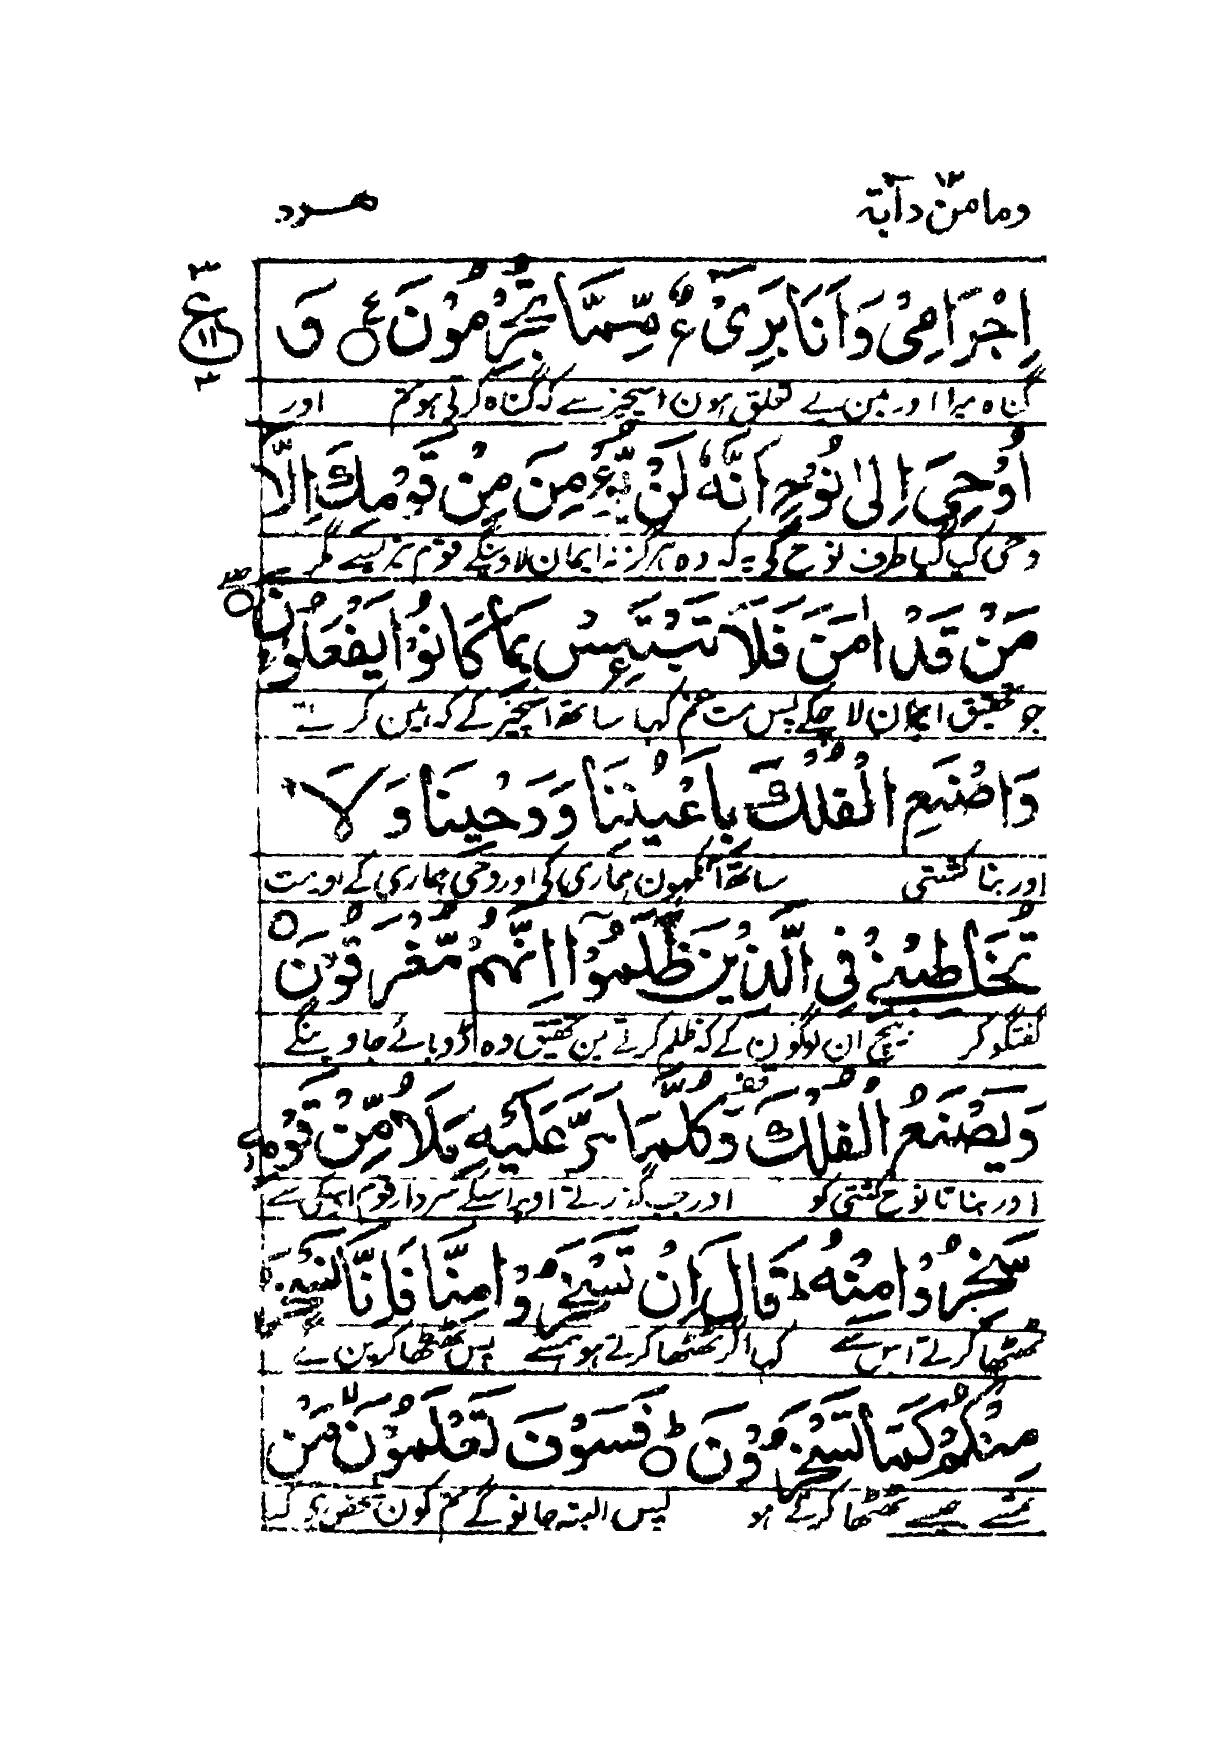 وما من دآبة ١٢
هود
اِجْرَامِیْ وَاَنَا بَرِیْٓءٌ مِّمَّا تُجْرِمُوْنَ ۝ ع وَ
٣ ع ١١ ٣
گناہ میرا اور مین بے تعلق ہون اسچیز سے کہ گناہ کرتی ہو تم اور
اُوْحِیَ اِلٰی نُوْحٍ اَنَّهٗ لَنْ یُّؤْمِنَ مِنْ قَوْمِكَ اِلَّا
وحی کی گیا طرف نوح کی یہ کہ وہ ہرگز نہ ایمان لاوینگے قوم تیری سے مگر
مَنْ قَدْ اٰمَنَ فَلَا تَبْتَئِسْ بِمَا كَانُوْا یَفْعَلُوْنَ ۝
جو تحقیق ایمان لا چکے پس مت غم کہا ساتھ اسچیز کے کہ ہین کرتے
وَاصْنَعِ الْفُلْكَ بِاَعْیُنِنَا وَوَحْیِنَا وَلَا
اور بنا کشتی ساتھ آنکہون ہماری کی اور وحی ہماری کے اور مت
تُخَاطِبْنِیْ فِی الَّذِیْنَ ظَلَمُوْا اِنَّهُمْ مُّغْرَقُوْنَ ۝
گفتگو کر بیچ ان لوگون کے کہ ظلم کرتے ہین تحقیق وہ ڈوبائے جاوینگے
وَیَصْنَعُ الْفُلْكَ وَكُلَّمَا مَرَّ عَلَیْهِ مَلَاٌ مِّنْ قَوْمِهٖ
اور بناتا نوح کشتی کو اور جب گذرتے اوپر اسکے سردار قوم اسکی سے
سَخِرُوْا مِنْهُ ط قَالَ اِنْ تَسْخَرُوْا مِنَّا فَاِنَّا نَسْخَرُ
ٹھٹھا کرتے اس سے کہا اگر ٹھٹھا کرتے ہو ہمسے پس ٹھٹھا کرین گے
مِنْكُمْ كَمَا تَسْخَرُوْنَ ۝ ط فَسَوْفَ تَعْلَمُوْنَ لا مَنْ
تمسے جیسے ٹھٹھا کرتے ہو پس البتہ جانو گے تم کون شخص ہی کہ